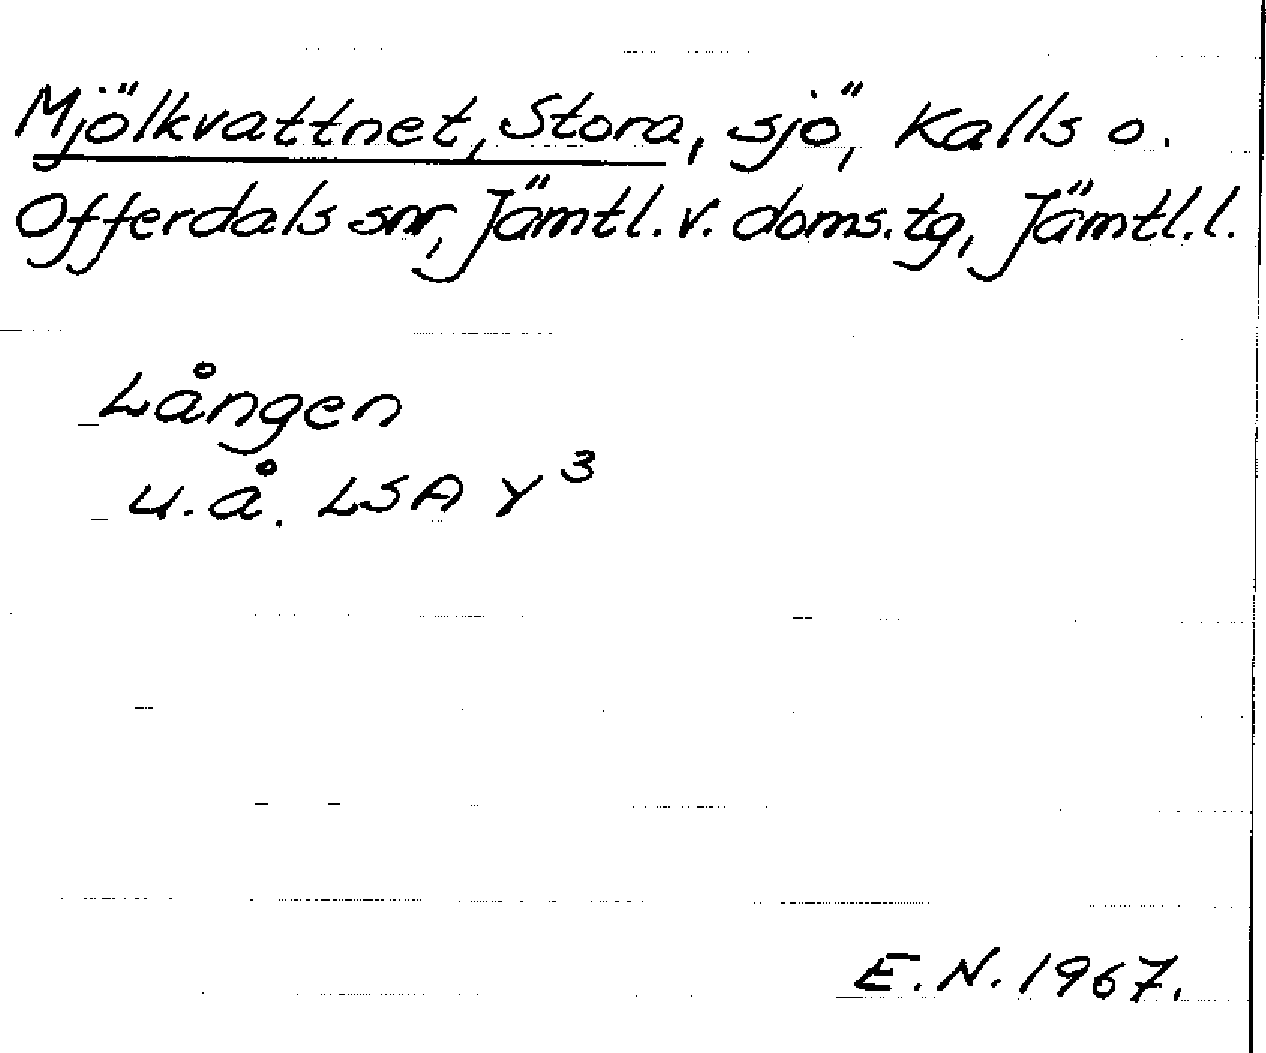 Mjölkvattnet, Stora, sjö, Kalls o.
Offerdals snr, Jämtl. v. doms. tg, Jämtl. l.
Lången
u. å. LSA Y³
E. N. 1967.